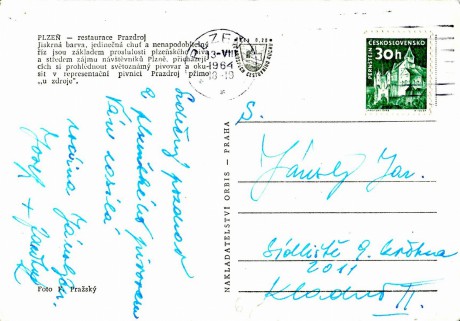 PLZEŇ — restaurace Prazdroj
Jiskrná barva, jedinečná chuť a nenapodobitelný
říz jsou základem proslulosti plzeňského piva
a středem zájmu návštěvníků Plzně, přicházejí-
cích si prohlédnout světoznámý pivovar a oku-
sit v representační pivnici Prazdroj přímo
„u zdroje".
PLZEŇ
3-VIII
1964
18-19
ČESKOSLOVENSKO
PERNŠTEJN
30h
NAKLADATELSTVÍ ORBIS - PRAHA
Srdečný pozdrav
z plzeňského pivovaru
Vám zasílá
rodina
Josef +
S.
Jan.
Sídliště 9. května
2011
Kladno II.
Foto P. Pražský